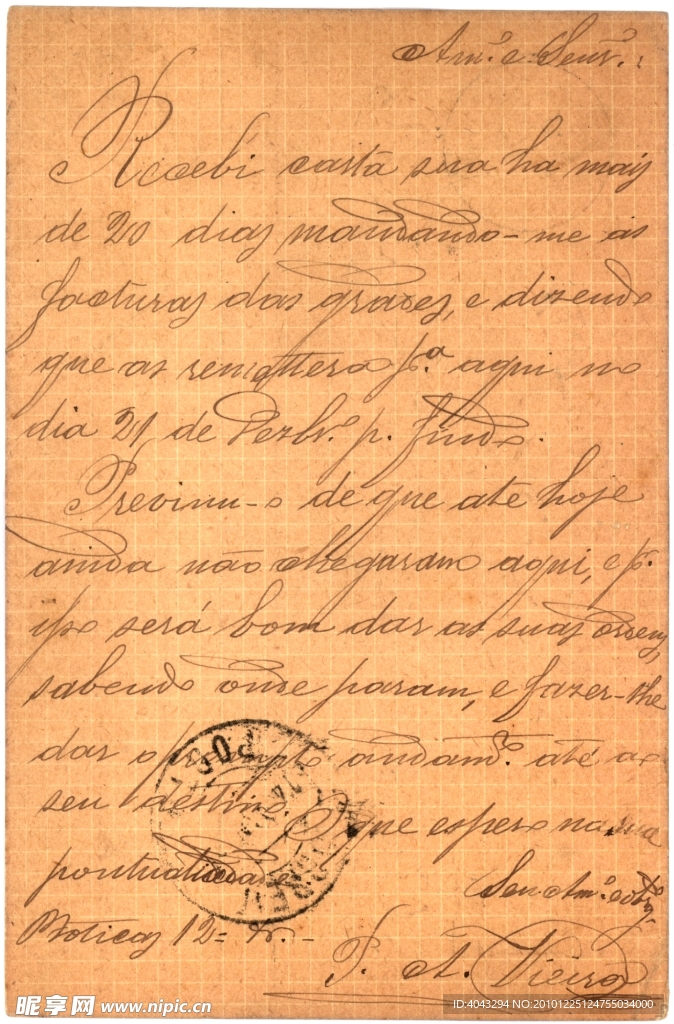 Am.º e Senr.:
Recebi carta sua ha mais
de 20 dias mandando-me as
facturas das grades, e dizendo
que as remettera p.ª aqui no
dia 21 de Dezbr.º p. findo.
Previnu-o de que até hoje
ainda não chegaram aqui, e p.r
isso será bom dar as suas ordens,
sabendo onde param, e fazer-lhe
dar o prompto andam.to até ao
seu destino. O que espero na sua
pontualidade.
Seu Am.º e obg.
Boticas 12=
P. A. Vieira
昵享网 www.nipic.cn
ID:4043294 NO:20101225124755034000